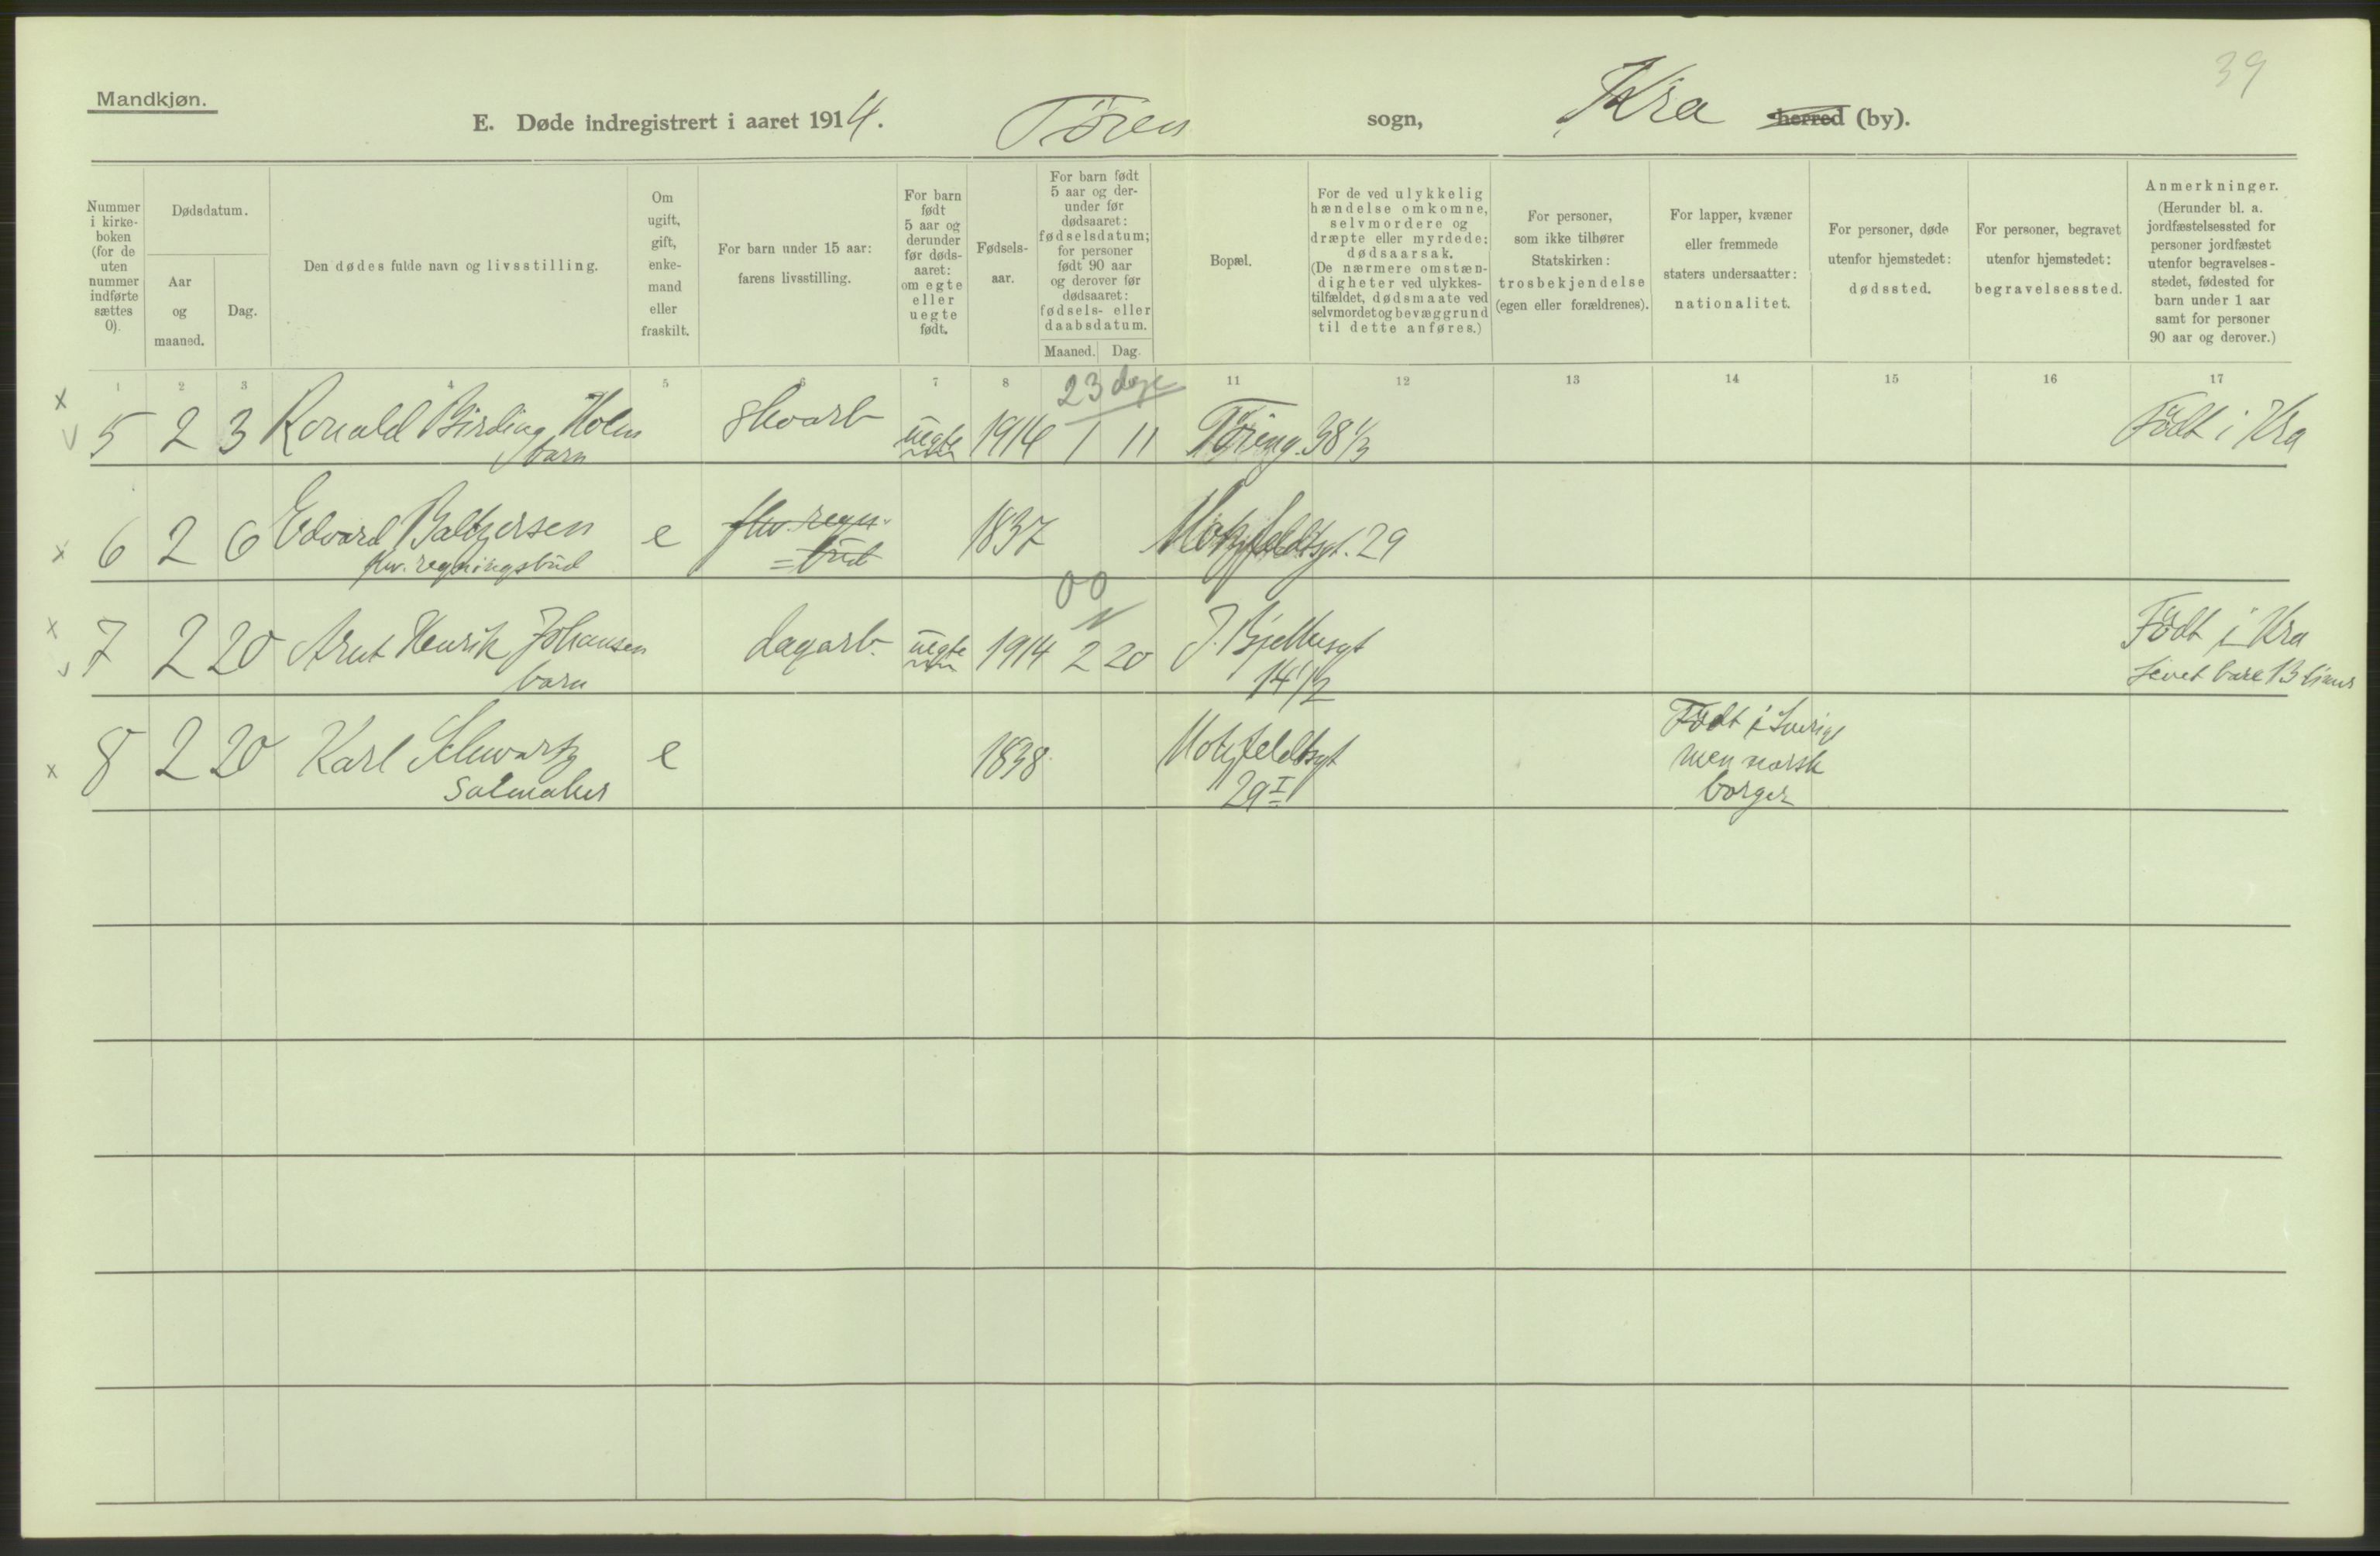 39
Mandkjøn.
E. Døde indregistrert i aaret 1914. Tøien sogn, Kra herred (by).
Nummer i kirke-boken (for de uten nummer indførte sættes 0).
Dødsdatum.
Aar og maaned.
Dag.
Den dødes fulde navn og livsstilling.
Om ugift, gift, enke-mand eller fraskilt.
For barn under 15 aar: farens livsstilling.
For barn født 5 aar og derunder før døds-aaret: om egte eller uegte født.
Fødsels-aar.
For barn født 5 aar og der-under før dødsaaret: fødselsdatum; for personer født 90 aar og derover før dødsaaret: fødsels- eller daabsdatum.
Maaned. Dag.
Bopæl.
For de ved ulykkelig hændelse omkomne, selvmordere og dræpte eller myrdede: dødsaarsak. (De nærmere omstæn-digheter ved ulykkes-tilfældet, dødsmaate ved selvmordet og bevæggrund til dette anføres.)
For personer, som ikke tilhører Statskirken: trosbekjendelse (egen eller forældrenes).
For lapper, kvæner eller fremmede staters undersaatter: nationalitet.
For personer, døde utenfor hjemstedet: dødssted.
For personer, begravet utenfor hjemstedet: begravelsessted.
Anmerkninger. (Herunder bl. a. jordfæstelsessted for personer jordfæstet utenfor begravelses-stedet, fødested for barn under 1 aar samt for personer 90 aar og derover.)
1 2 3 4 5 6 7 8 11 12 13 14 15 16 17
23 dage
x 5 2 3 Ronald Birding Holm skoarb uegte 1914 1 11 Tøieng. 38 1/3 Født i Kra
barn
x 6 2 6 Edvard Baltzersen e fhv. regn. 1837 Motzfeldtsgt. 29
fhv. regningsbud = bud
00
x 7 2 20 Arnt Henrik Johansen dagarb. uegte 1914 2 20 J. Bjelkesgt Født i Kra
barn 14 1/2 Levet bare 13 timer
x 8 2 20 Karl Schwartz e 1838 Motzfeldtsgt Født i Sverige
Salmaker 29 I men norsk
borger